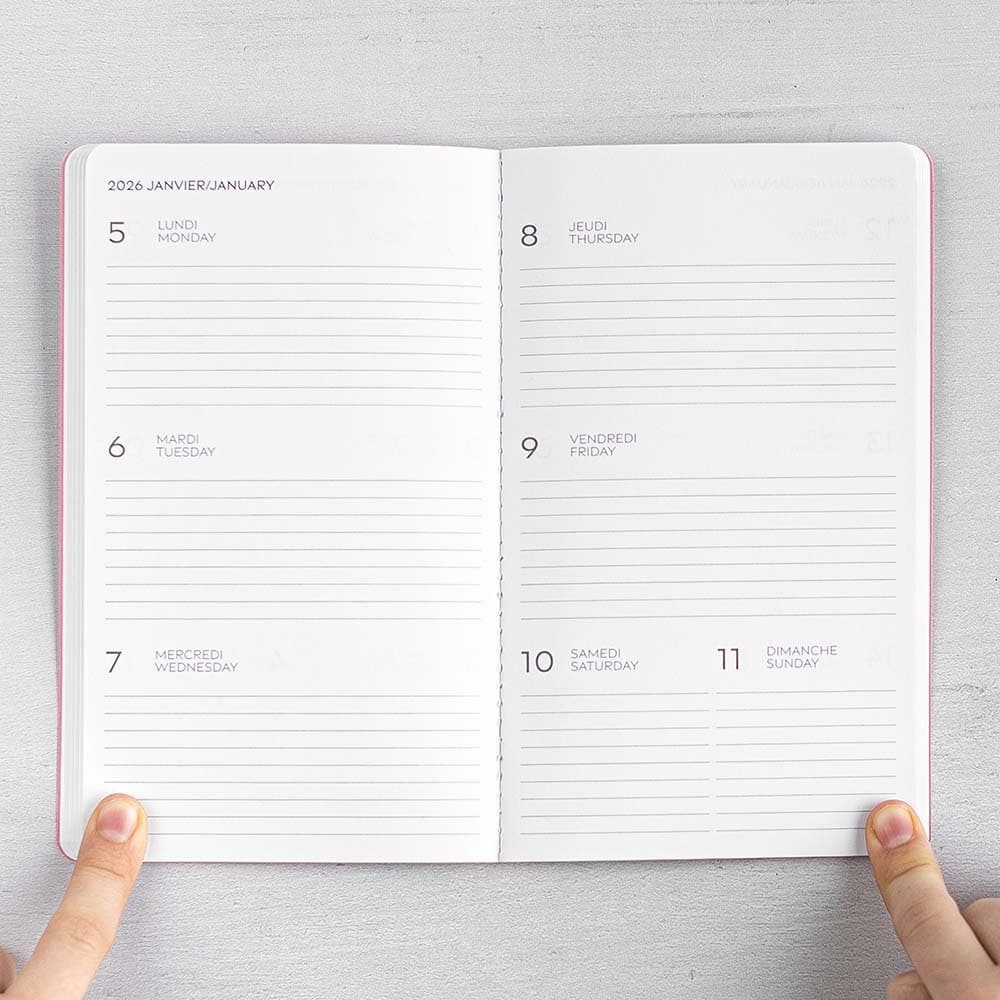 2026 JANVIER/JANUARY
5
LUNDI
MONDAY
6
MARDI
TUESDAY
7
MERCREDI
WEDNESDAY
8
JEUDI
THURSDAY
9
VENDREDI
FRIDAY
10
SAMEDI
SATURDAY
11
DIMANCHE
SUNDAY